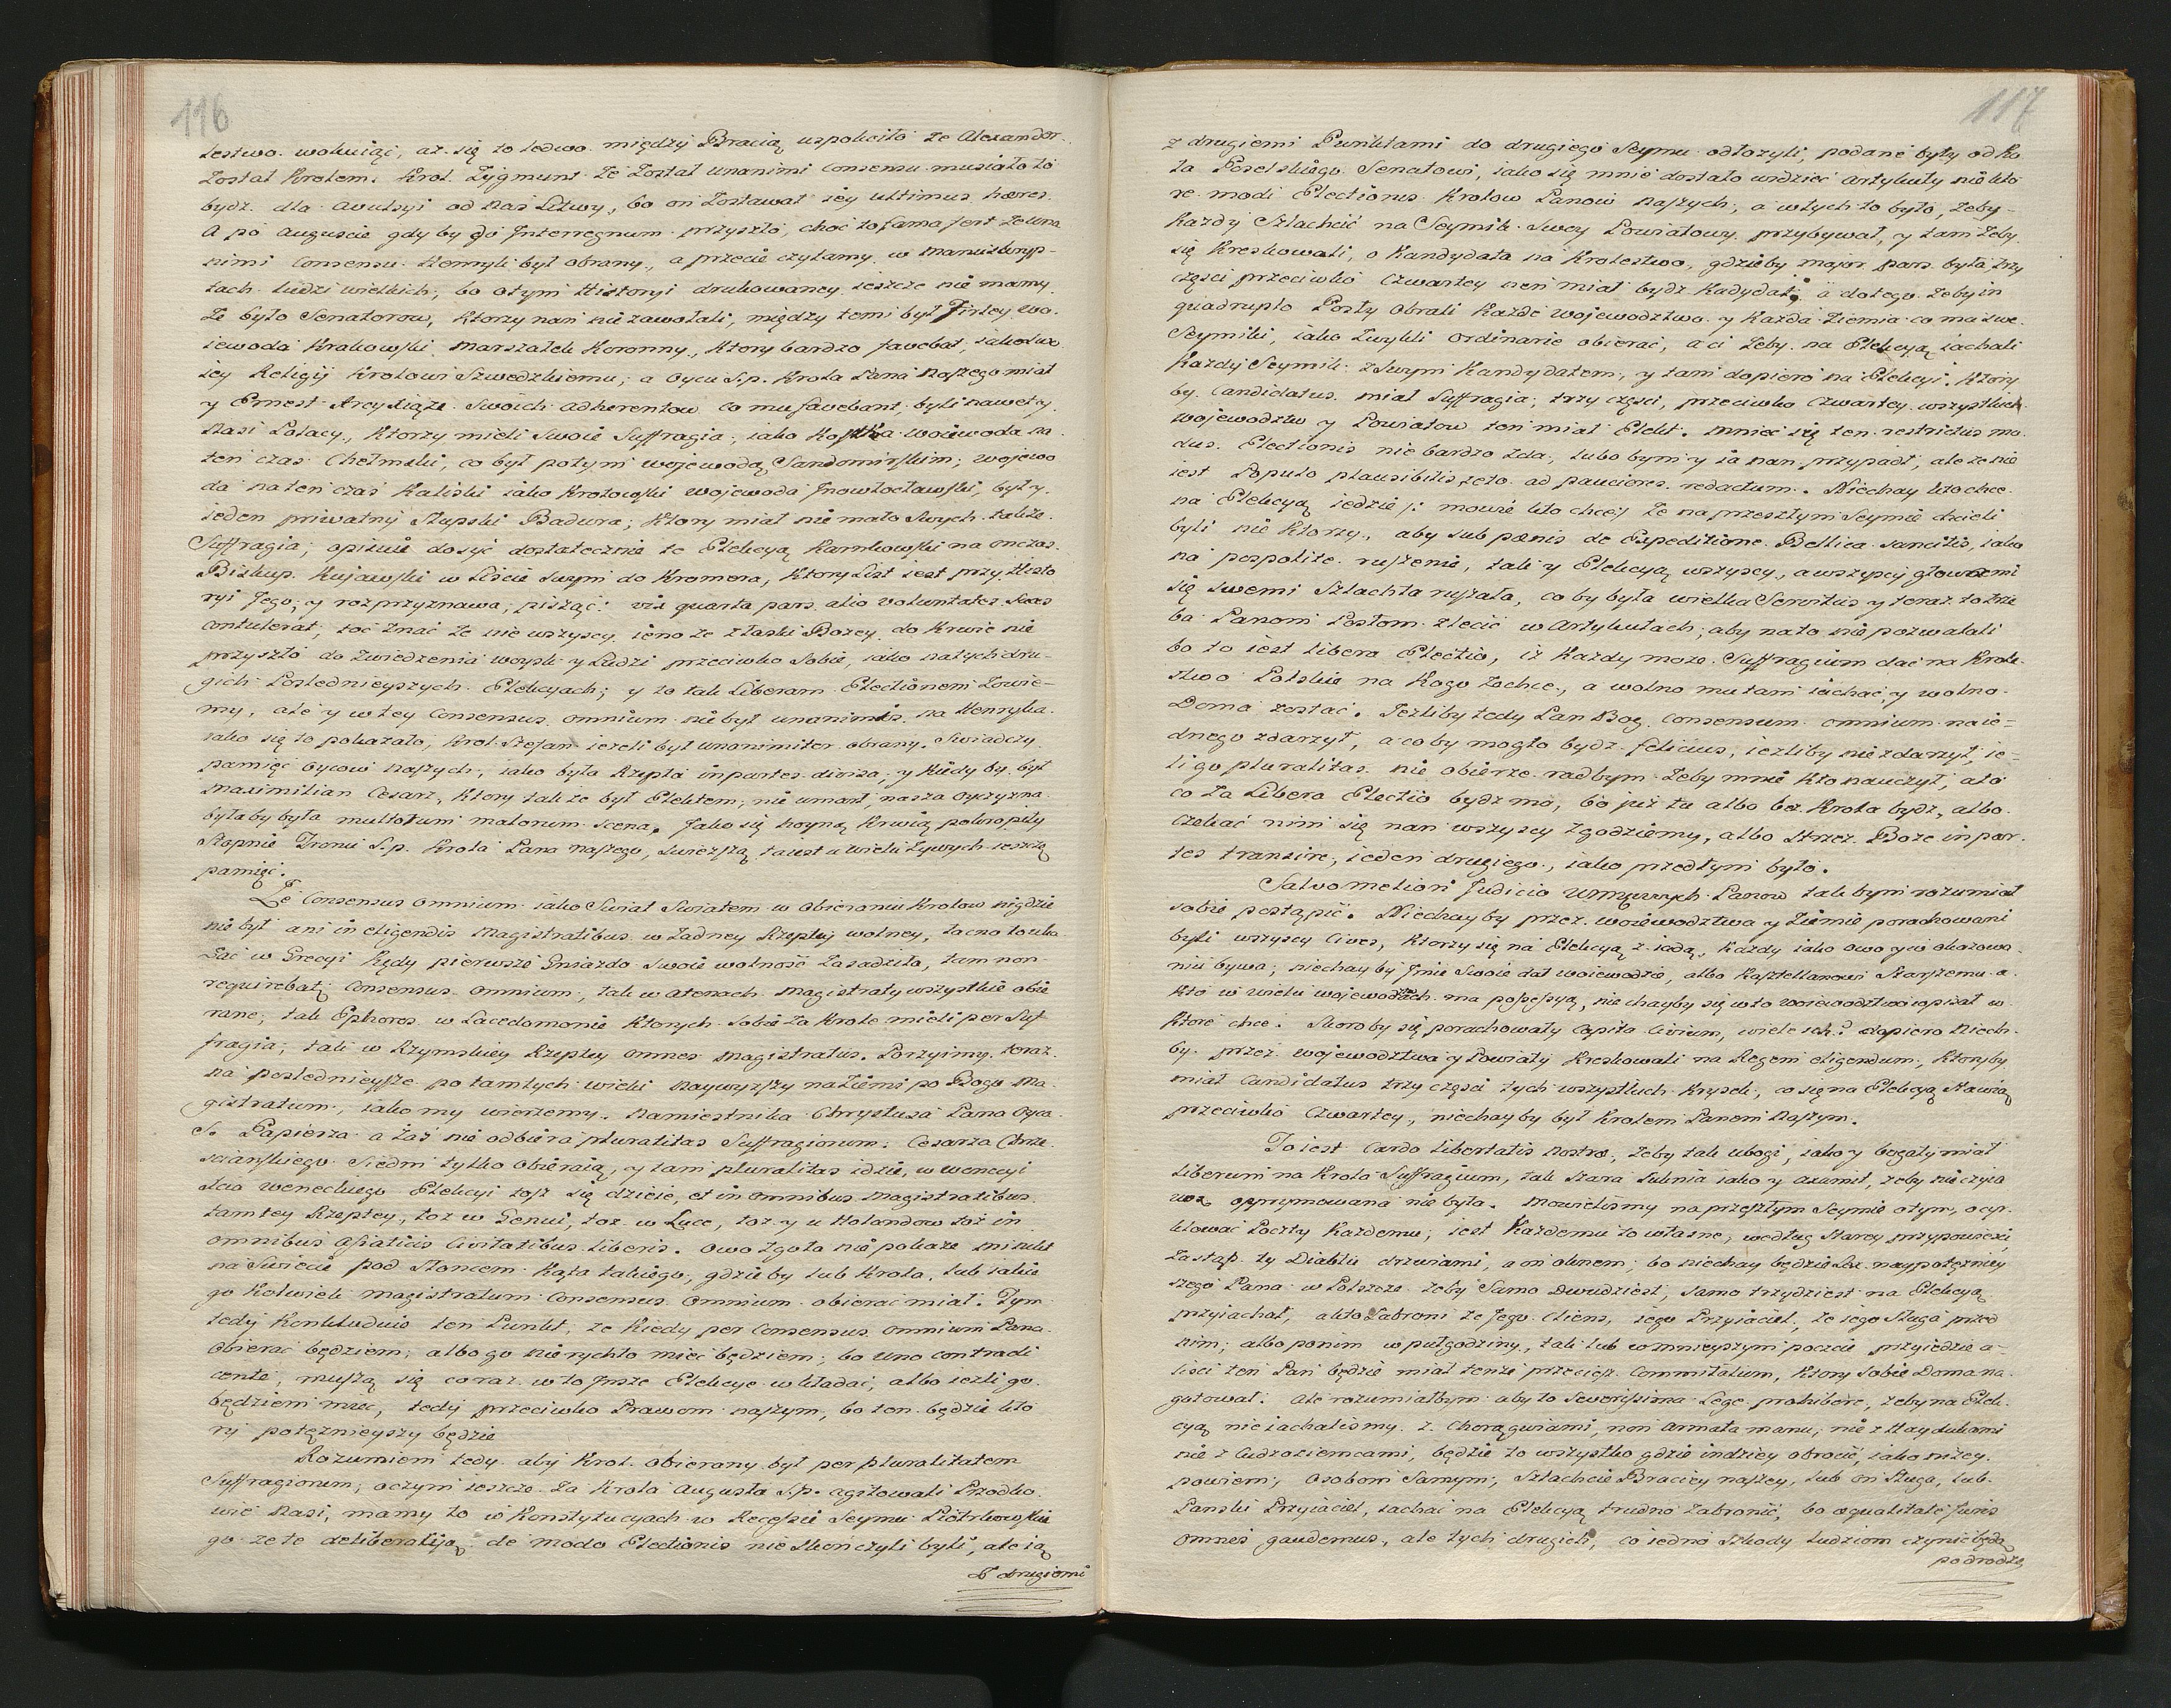 116
lestwo wokuiąc, aż się to ledwo między Bracią uspokoiło że Alexander
został Krolem. Krol Zygmunt że został unanimi consensu musiało to
bydź dla avulsyi od Nas Litwy, bo on zostawał iey ultimus hæres.
A po Auguscie gdy by do Interregnum przyszło, choć to fama jest że una
nimi consensu Henryk był obrany, a przecie czytamy w manuskryp-
tach ludzi wielkich, bo otym Historyi drukowaney ieszcze nie mamy
że było Senatorow, ktorzy nań nie zawołali, między temi był Firley Wo-
iewoda Krakowski Marszałek Koronny, ktory bardzo favebat, iako
iey Religij Krolowi Szwedzkiemu; a Oycu S.p. Krola Pana Naszego miał
y Ernest Arcyxiąże swoich adherentow co mu favebant, byli nawet y
Nasi Polacy, ktorzy mieli swoie Suffragia, iako Kostka woiewoda na
ten czas Chełmski, co był potym wojewodą Sandomirskim; wojewo
da na ten czas Kaliski iako Krotowski wojewoda Jnowłocławski, był y
ieden priwatny Słupski Badura, ktory miał nie mało swych także
Suffragia; opisuie dosyć dostatecznie te Elekcyą Karnkowski na onczas
Biskup Kujawski w Liscie swym do Kromera, ktory List iest przy Histo
ryi Jego, y rozprzyznawa, pisząc: vix quarta pars alio voluntates suas
contulerat, toć znać że nie wszyscy, ieno że z łaski Bozey do krwie nie
przyszło do zwiedzenia woysk y Ludzi przeciwko sobie, iako na tych dru-
gich Poslednieyszych Elekcyach; y to tak Liberam Electionem zowie-
my, ale y w tey Consensus omnium nie był unanimis na Henryka
iako się to pokazało, Krol Stefan iezeli był unanimiter obrany swiadczy
pamięć Oycow naszych, iako była Rzepta in partes divisa, y kiedy by był
Maximilian Cesarz, ktory także był Elektem, nie umarł, nasza Oyczyzna
byłaby była multorum malorum scena. Jako się hoyną krwią pokropiły
stopnie Tronu S.p. Krola Pana naszego, swieższą ta iest u wielu żywych ieszcze
pamięć.
Że Consensus omnium iako Swiat Swiatem w obieraniu Krolow nigdzie
nie był ani in eligendis Magistratibus w żadney Rzeptey wolney, łacno to uka
zać w Grecyi kędy pierwsze Gniazdo swoie wolność zasadziła, tam non
requirebatur Consensus omnium, tak w Atenach Magistraty wszystkie obie
rane; tak Ephoros w Lacedomonie ktorych sobie za Krole mieli per Suf
fragia, tak w Rzymskiey Rzeptey omnes Magistratus. Porzyimy teraz
na poslednieysze po tamtych wieki Naywyższy na Ziemi po Bogu Ma-
gistratum, iako my wierzemy, Namiestnika Chrystusa Pana Oyca
S. Papieża a zaż nie odbiera pluralitas Suffragiorum: Cesarza Chrze
sciańskiego Siedm tylko obieraią, y tam pluralitas idzie, w Wenecyi
Xcia Weneckiego Elekcyi toż się dzieie, et in omnibus Magistratibus
tamtey Rzeptey, toż w Genui, toż w Luce, toż y u Holandow toż in
omnibus Asiaticis Civitatibus liberis. Owo zgoła nie pokaze mi nikt
na Swiecie pod Słońcem kąta takiego, gdzie by lub Krola, lub iakie
go kolwiek magistratum Consensus omnium obierać miał. Tym
tedy konkluduie ten Punkt, że kiedy per Consensus omnium Pana
obierać będziem, albo go nierychło mieć będziem, bo uno contradi
cente, muszą się coraz w to Jnsze Elekcye wkładać, albo iezli go
będziem mieć, tedy przeciwko Prawom naszym, bo ten będzie kto
ry potężnieyszy będzie
Rozumiem tedy aby Krol obierany był per pluralitatem
Suffragiorum; oczym ieszcze za Krola Augusta S.p. agitowali Przodko
wie Nasi, mamy to w Konstytucyach w Recessie Seymu Piotrkowskie
go że te deliberatią de modo Electionis nie skończyli byli, ale ią
z drugiemi
117
z drugiemi Punktami do drugiego Seymu odłożyli, podane były od Ko
ła Poselskiego Senatowi, iako się mnie dostało widzieć Artykuły niekto
re modi Electionis Krolow Panow Naszych, a w tych to było, żeby
każdy Szlachcic na Seymik swey Powiatowy przybywał, y tam żeby
się kreskowali, o Kandydata na Krolestwo, gdzieby major pars była trzy
częsci przeciwko czwartey ten miał bydź Kadydat; a do tego żeby in
quadruplo Posły obrali każde wojewodztwo y każda Ziemia co ma swe
Seymiki, iako zwykli ordinarie obierać, a ci żeby na Elekcyą iachali
każdy Seymik z swym Kandydatem, y tam dopiero na Elekcyi, ktory
by Candidatus miał Suffragia, trzy częsci, przeciwko czwartey wszystkich
wojewodztw y Powiatow ten miał Elekt. Mnieć się ten restrictus mo
dus Electionis nie bardzo zda, lubo bym y ia nań przypadł, ale że nie
iest Populo plausibilis, że to ad pauciores redactum. Niechay kto chce
na Elekcyą iedzie /: mowie kto chce:/ że na przeszłym Seymie chcieli
byli nie ktorzy, aby sub pœnis de Expeditione Bellica sancitis, iako
na pospolite ruszenie, tak y Elekcyą wszyscy, a wszyscy głowami
się swemi Szlachta ruszała, co by była wielka Servitus y teraz to trze
ba Panom Posłom zlecić w Artykułach, aby na to nie pozwalali
bo to iest libera Electio, iż każdy może Suffragium dać na Krole-
stwo Polskie na kogo zechce, a wolno mu tam iachać, y wolno
Doma zostać. Jeżliby tedy Pan Bog consensum omnium na ie-
dnego zdarzył, a coby mogło bydź felicius, ieżliby nie zdarzył, ie-
li go pluralitas nie obierze radbym żeby mnie kto nauczył, ato
co za Libera Electio bydź ma, bo już tu albo bez Krola bydź, albo
czekać nim się nań wszyscy zgodziemy, albo strzeż Boże in par-
tes transire, ieden drugiego, iako przedtym było.
Salvo meliori Judicio Umnych Panow tak bym rozumiał
sobie postąpić. Niechayby przez wojewodztwa y Ziemie porachowani
byli wszyscy Cives, ktorzy się na Elekcyą z iadą, każdy iako owo przy okazowa
niu bywa, niechay by Jmie swoie dał woiewodzie, albo Kasztellanowi starszemu a
kto w wielu wojewodztwach ma possessyą, niechayby się w to woiewodztwo wpisał w
ktore chce. Skoro by się porachowały Capita Civium, wiele ich? dopiero niech
by przez wojewodztwa y Powiaty kreskowali na Regem eligendum, ktoryby
miał Candidatus trzy częsci tych wszystkich krysek, co się na Elekcyą stawią
przeciwko czwartey, niechay by był Krolem Panem Naszym.
To iest cardo libertatis nostræ, żeby tak ubogi, iako y bogaty miał
Liberum na Krola Suffragium, tak szara suknia iako y axamit, żeby niczyia
opprymowana nie była. Mowilismy na przeszłym Seymie otym, ocyr-
klować Poczty każdemu, iest każdemu to własne, według starey przypowiesci,
zastąp ty Diabłu drzwiami, a on oknem, bo niechay będzie Lex naypotężniey
szego Pana w Polszcze żeby samo dwudziest, samo trzydziest na Elekcyą
przyiachał, a kto zabroni że Jego Cliens, iego Przyiaciel, że iego sługa przed
nim, albo po nim w pułgodziny, tak lub w mnieyszym poczcie przyiedzie a-
liści ten Pan będzie miał tenże przecież Commitatum, ktory sobie Doma na
gotował. Ale rozumiałbym aby to severissima Lege prohibere, żeby na Elek-
cyą nie iachalismy z chorągwiami, non armata manu, nie z Haydukami
nie z cudzoziemcami, będzie to wszystko gdzie indziey obrocić, iako niżey
powiem, Osobom samym, Szlachcie Braciey naszey, lub on sługa, lub
Pański Przyiaciel, iachać na Elekcyą trudno zabronić, bo æqualitate Juris
omnes gaudemus, ale tych drugich, co iedno szkody ludziom czynić będą
po drodze